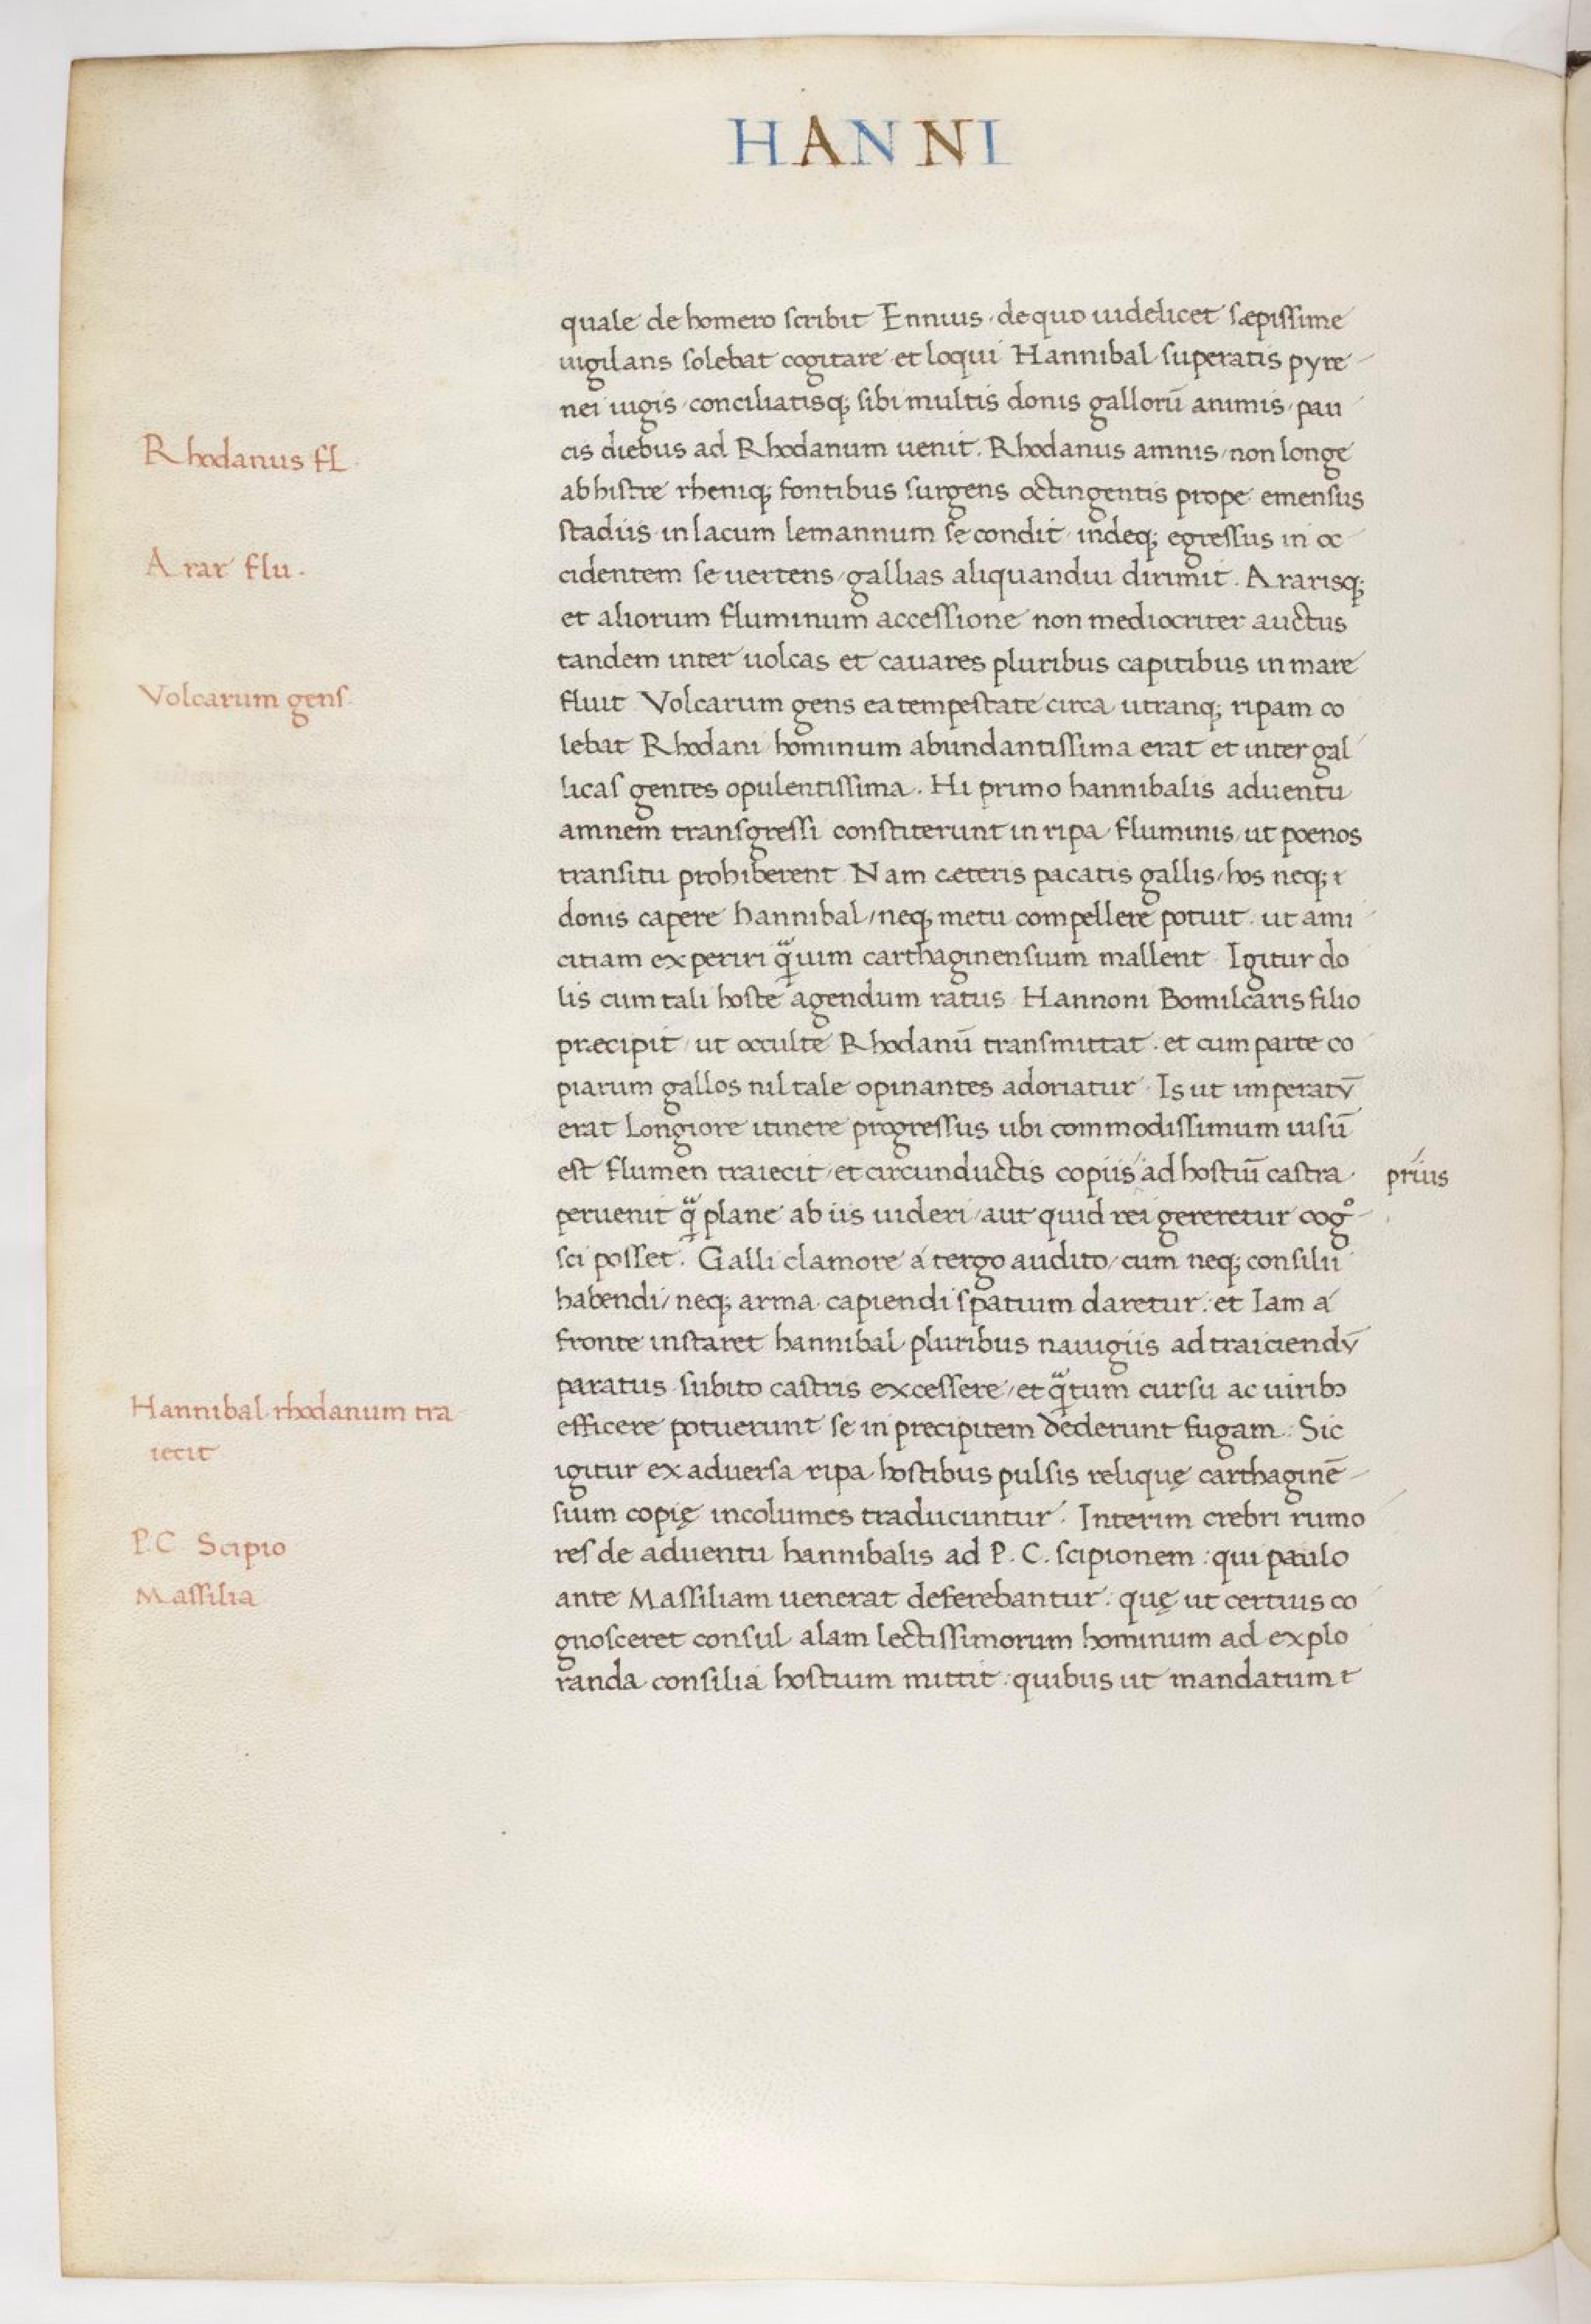 HANNI
quale de homero scribit Ennius · de quo uidelicet sæpissime
uigilans solebat cogitare et loqui Hannibal superatis pyre
nei iugis / conciliatisq; sibi multis donis gallorū animis / pau
cis diebus ad Rhodanum uenit. Rhodanus amnis / non longe
Rhodanus fl.
ab histre rheniq; fontibus surgens octingentis prope emensus
stadiis in lacum lemannum se condit · indeq; egressus in oc
cidentem se uertens / gallias aliquandiu dirimit. Ararisq;
Arar flu.
et aliorum fluminum accessione non mediocriter auctus
tandem inter uolcas et cauares pluribus capitibus in mare
fluit Volcarum gens ea tempestate circa utranq; ripam co
Volcarum gens.
lebat Rhodani hominum abundantissima erat et inter gal
licas gentes opulentissima. Hi primo hannibalis aduentu
amnem transgressi constiterunt in ripa fluminis / ut poenos
transitu prohiberent Nam cæteris pacatis gallis / hos neq;
donis capere hannibal / neq; metu compellere potuit · ut ami
citiam experiri q̃uim carthaginensium mallent · Igitur do
lis cum tali hoste agendum ratus Hannoni Bomilcaris filio
præcipit / ut occulte Rhodanū transmittat · et cum parte co
piarum gallos nil tale opinantes adoriatur · Is ut imperatv̄
erat Longiore itinere progressus ubi commodissimum uisū
est flumen traiecit / et circunductis copiis ad hostiū castra
prius
peruenit q̃ plane ab iis uideri / aut quid rei gereretur cogº
sci posset. Galli clamore á tergo audito / cum neq; consilii
habendi / neq; arma capiendi spatium daretur : et Iam á
fronte instaret hannibal pluribus nauigiis ad traiciendv̄
paratus subito castris excessere / et q̃tum cursu ac uirib;
Hannibal rhodanum tra
iecit
efficere potuerunt se in precipitem dederunt fugam. Sic
igitur ex aduersa ripa hostibus pulsis reliquę carthaginē
sium copię incolumes traducuntur. Interim crebri rumo
P.C. Scipio
res de aduentu hannibalis ad P. C. scipionem : qui paulo
Massilia
ante Massiliam uenerat deferebantur : quę ut certius co
gnosceret consul alam lectissimorum hominum ad explo
randa consilia hostium mittit : quibus ut mandatum